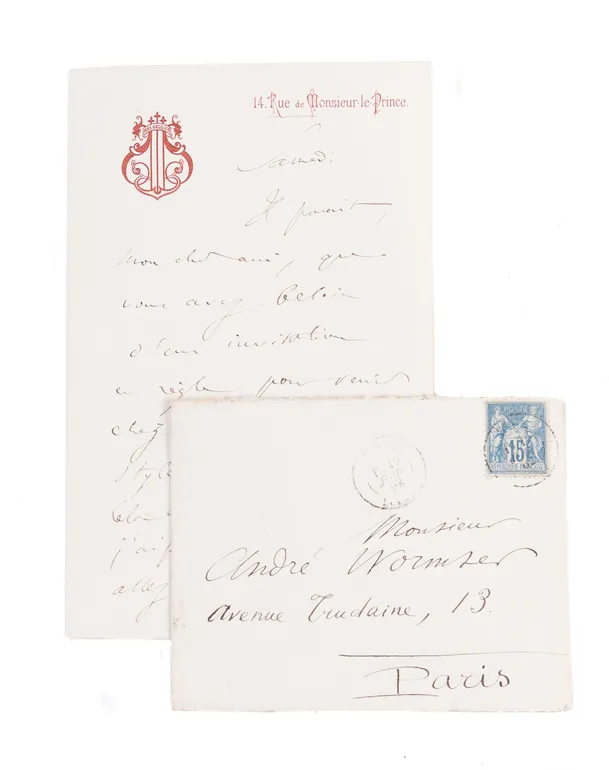 14. Rue de Monsieur-le-Prince.
Samedi
Il parait,
mon cher ami, que
vous avez besoin
d'une invitation
en règle pour venir
chez
Style
j'ai
allez
POSTES
15
REPUBLIQUE FRANÇAISE
Monsieur
André Wormser
Avenue Trudaine, 13.
Paris